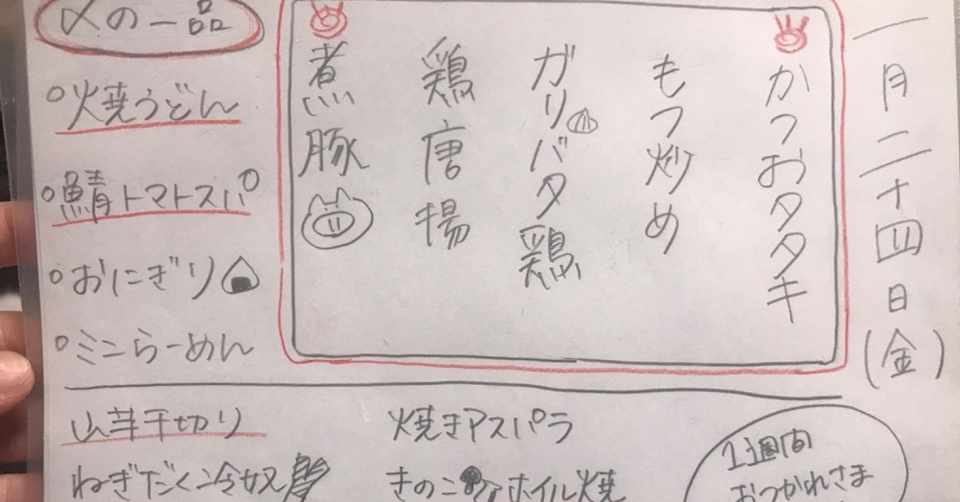 一月二十四日(金)
かつおタタキ
もつ炒め
ガリバタ鶏
鶏唐揚
煮豚
〆の一品
焼うどん
鯖トマトスパ
おにぎり
ミニらーめん
山芋千切り
焼きアスパラ
ねぎだく冷奴
きのこホイル焼
1週間
おつかれさま